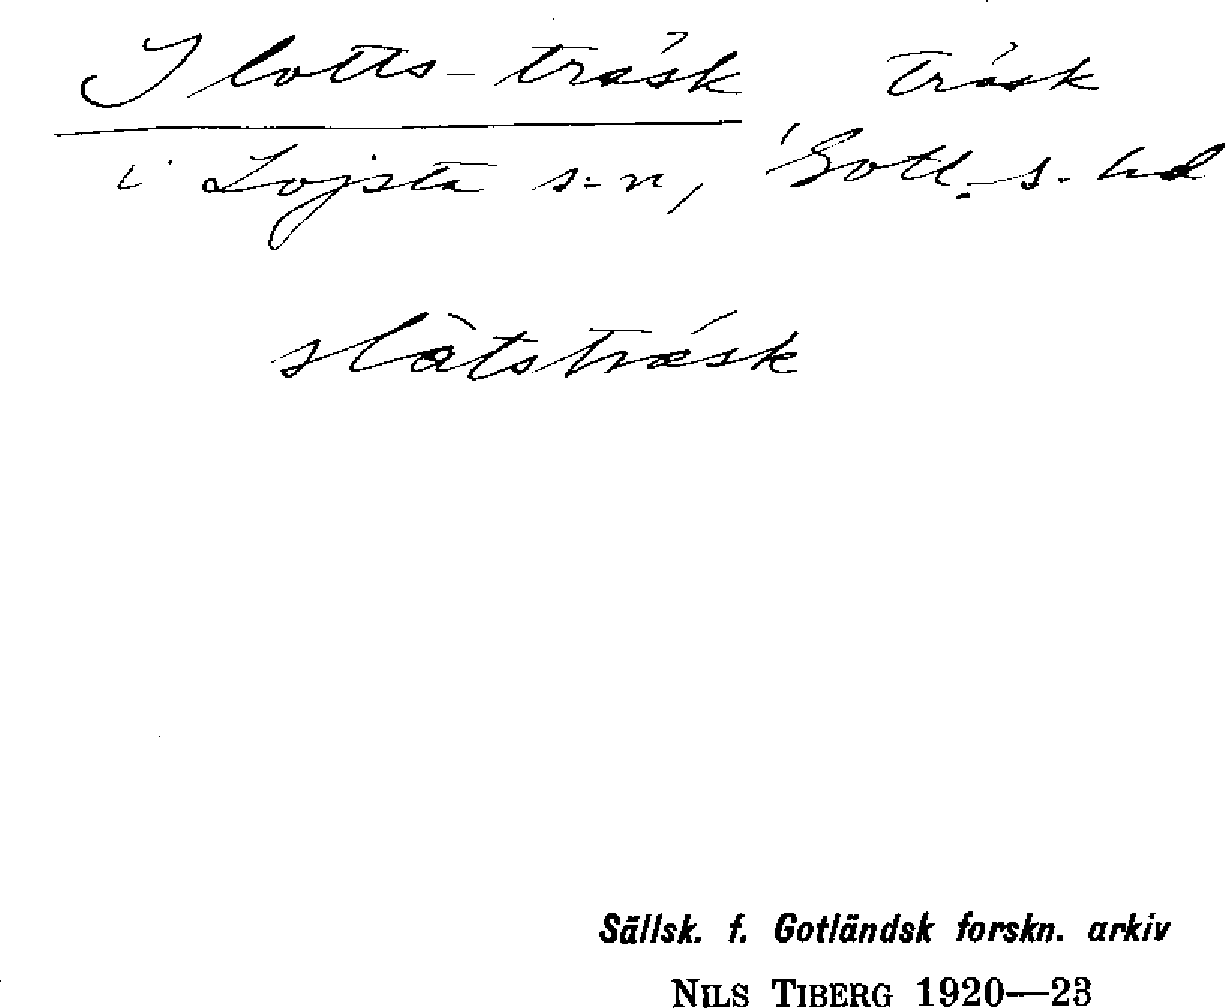 Slotts-träsk träsk
i Lojsta s-n, Gotl. s. hd
slàtstrásk
Sällsk. f. Gotländsk forskn. arkiv
NILS TIBERG 1920—23